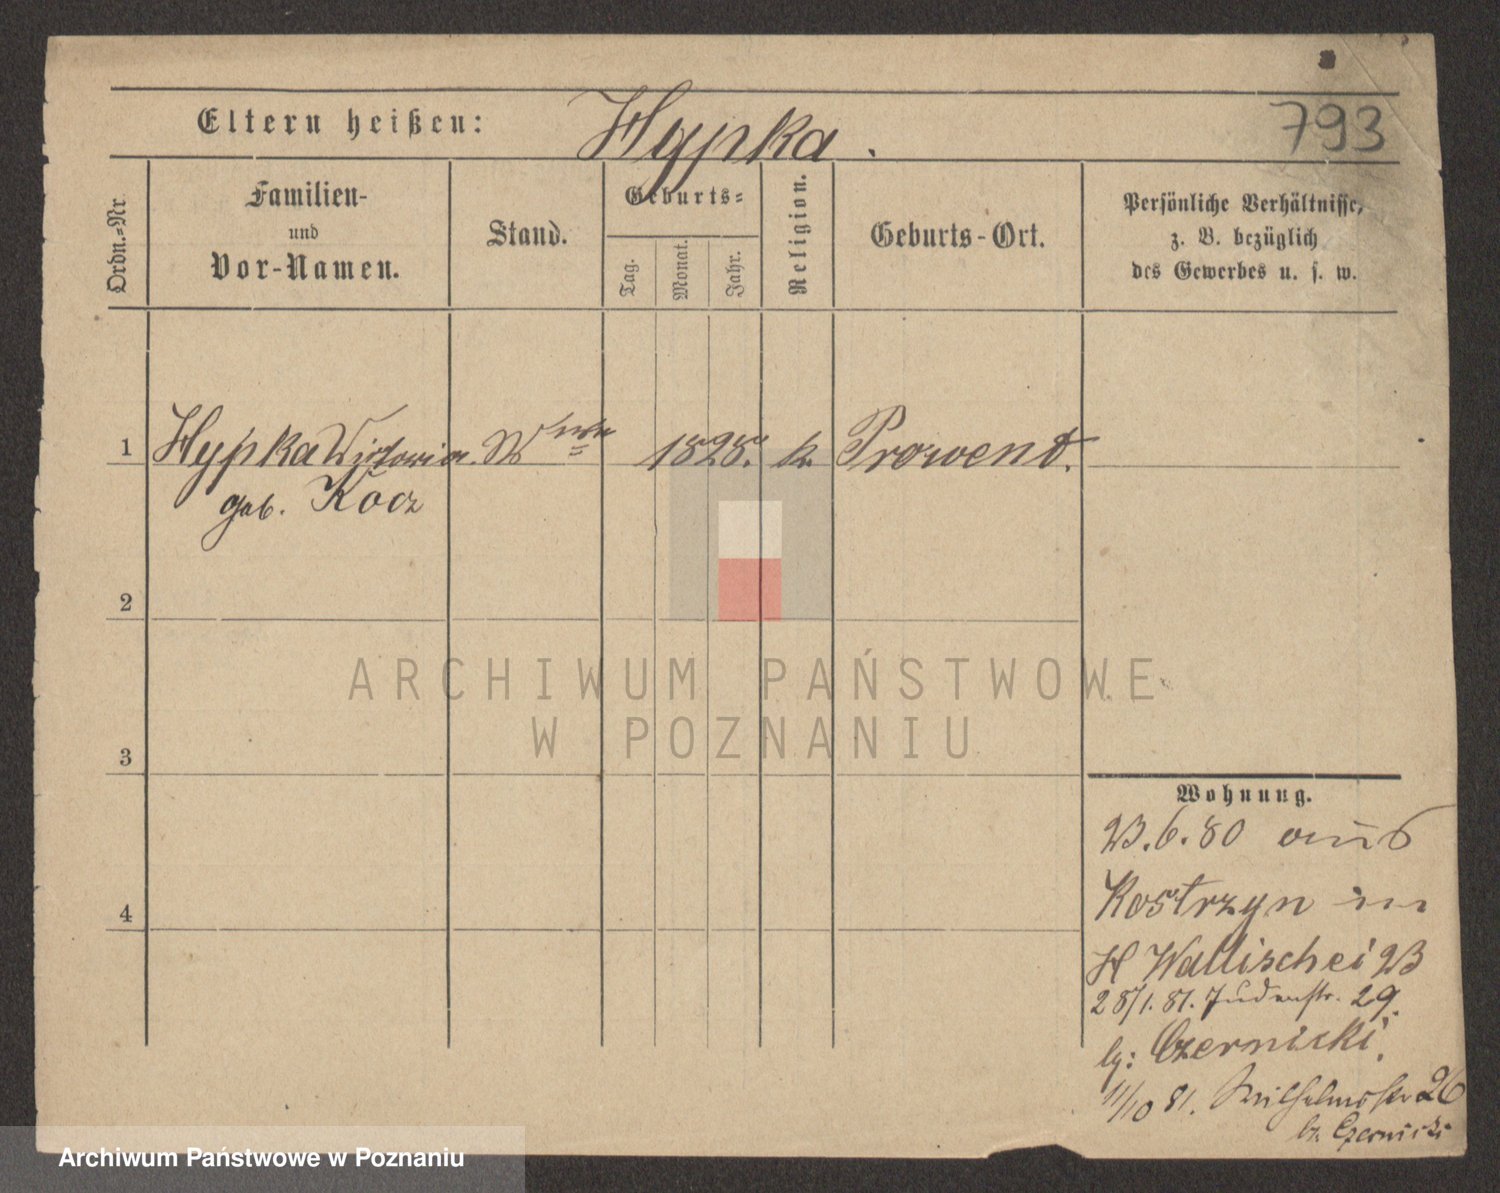 793
Eltern heißen: Hypka.
Ordn.-Nr.
Familien-
und
Vor-Namen.
Stand.
Geburts-
Tag.
Monat.
Jahr.
Religion.
Geburts-Ort.
Persönliche Verhältnisse,
z. B. bezüglich
des Gewerbes u. s. w.
1 Hypka Victoria. Wwe 1828. k. Prowent.
geb. Kocz
2
3
4
ARCHIWUM PAŃSTWOWE
W POZNANIU
Wohnung.
23.6.80 aus
Kostrzyn in
H Wallischei 23
28/1.81. Judenstr. 29.
Czernicki.
11/10 81. Wilhelmsstr 26
b. Czernicki
Archiwum Państwowe w Poznaniu